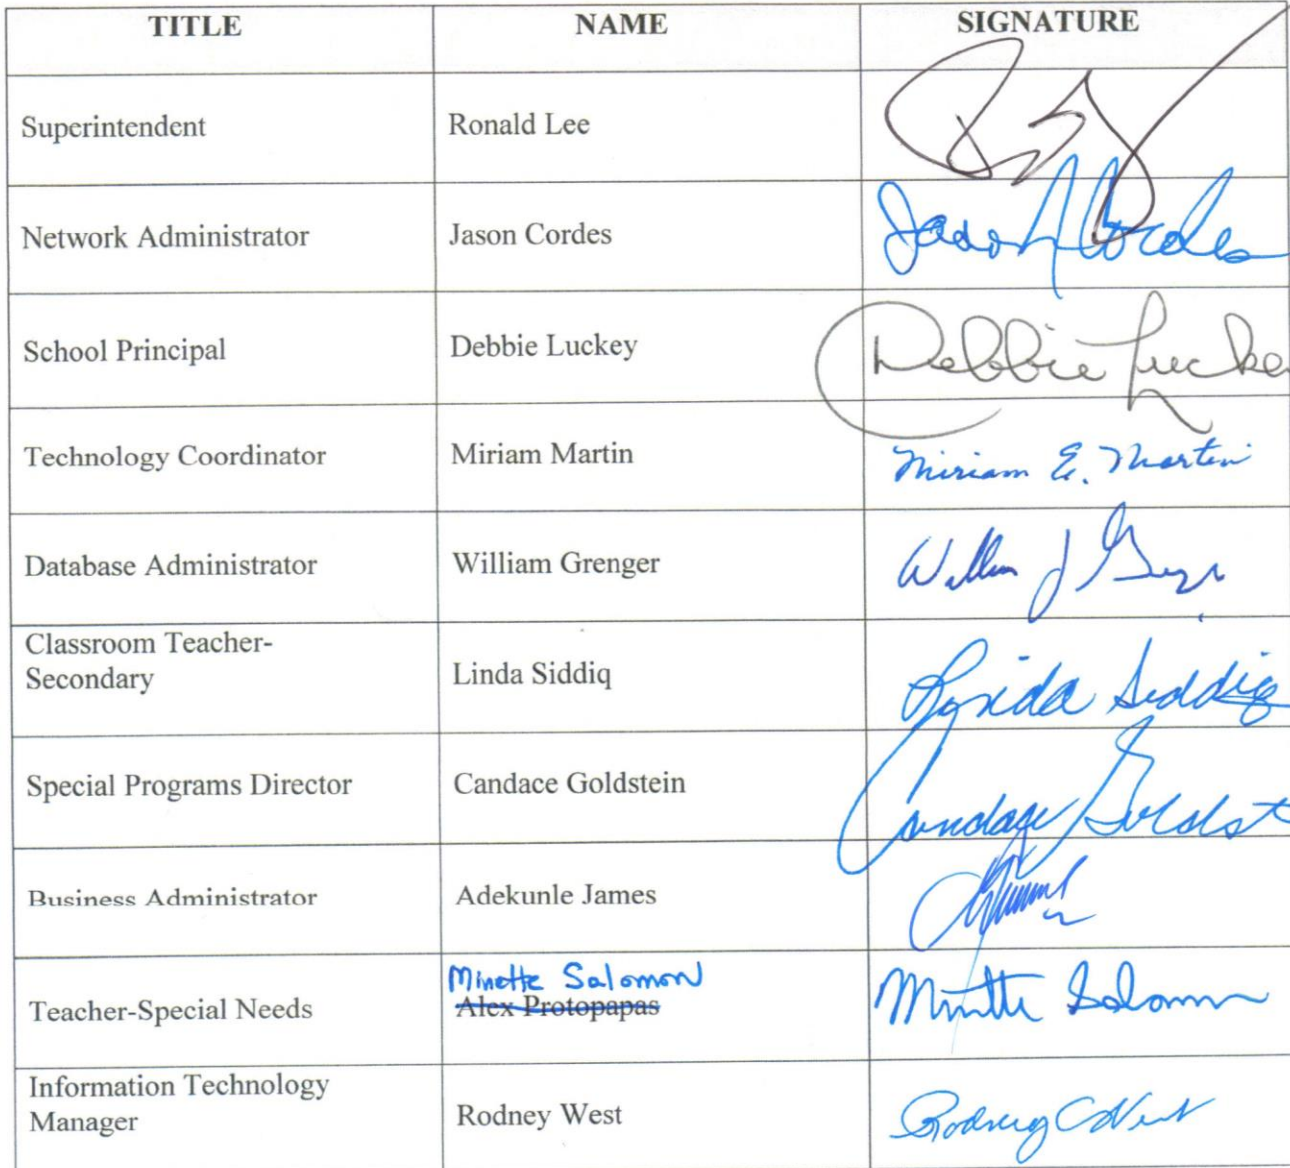 TITLE NAME SIGNATURE
Superintendent Ronald Lee
Network Administrator Jason Cordes Jason Cordes
School Principal Debbie Luckey Debbie Lucke
Technology Coordinator Miriam Martin Miriam E. Martin
Database Administrator William Grenger William J
Classroom Teacher-
Secondary Linda Siddiq Linda Siddiq
Special Programs Director Candace Goldstein Candace Goldst
Business Administrator Adekunle James
Minette Salomon
Teacher-Special Needs Alex Protopapas Minette Salomon
Information Technology
Manager Rodney West Rodney West